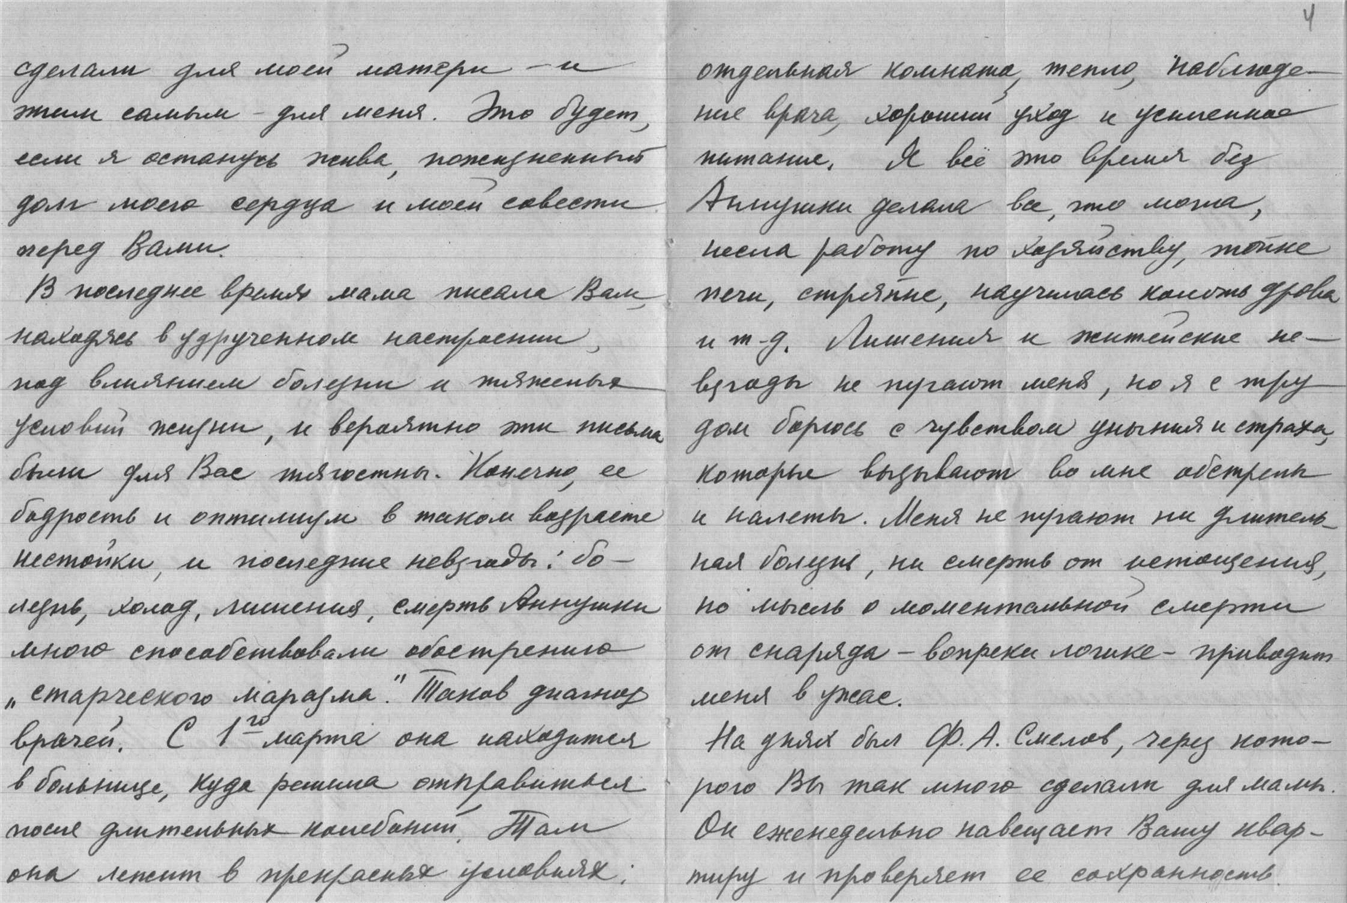 сделали для моей матери – и
тем самым – для меня. Это будет,
если я останусь жива, пожизненный
долг моего сердца и моей совести
перед Вами.
В последнее время мама писала Вам,
находясь в удрученном настроении,
под влиянием болезни и тяжелых
условий жизни, и вероятно эти письма
были для Вас тягостны. Конечно, ее
бодрость и оптимизм в таком возрасте
нестойки, и последние невзгоды: бо–
лезнь, холод, лишения, смерть Аннушки
много способствовали обострению
„старческого маразма". Таков диагноз
врачей. С 1го марта она находится
в больнице, куда решила отправиться
после длительных колебаний. Там
она лежит в прекрасных условиях:
4
отдельная комната, тепло, наблюде–
ние врача, хороший уход и усиленное
питание. Я всё это время без
Аннушки делала все, что могла,
несла работу по хозяйству, топке
печи, стряпне, научилась колоть дрова
и т-д. Лишения и житейские не–
взгоды не пугают меня, но я с тру
дом борюсь с чувством уныния и страха,
которые вызывают во мне обстрелы
и налеты. Меня не пугают ни длитель–
ная болезнь, ни смерть от истощения,
но мысль о моментальной смерти
от снаряда – вопреки логике – приводит
меня в ужас.
На днях был Ф. А. Смелов, через кото–
рого Вы так много сделали для мамы.
Он еженедельно навещает Вашу квар–
тиру и проверяет ее сохранность.